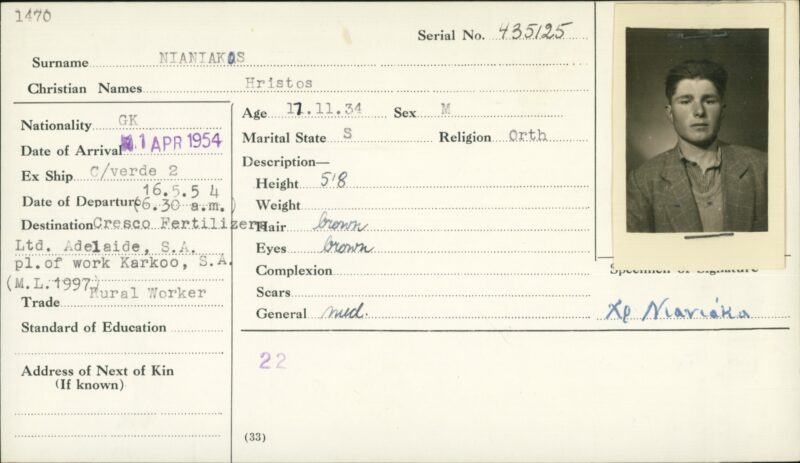 1470
Serial No. 435125
Surname NIANIAKOS
Christian Names Hristos
Nationality GK
Date of Arrival 1 APR 1954
Ex Ship C/verde 2
Date of Departure 16.5.54
(6.30 a.m.)
Destination Cresco Fertilizers
Ltd. Adelaide, S.A.
pl.of work Karkoo, S.A.
(M.L.1997)
Trade Rural Worker
Standard of Education
Address of Next of Kin
(If known)
Age 11.11.34 Sex M
Marital State S Religion Orth
Description—
Height 5'8
Weight
Hair brown
Eyes brown
Complexion
Scars
General med.
22
(33)
Specimen of Signature
Χρ Νιανιάκα